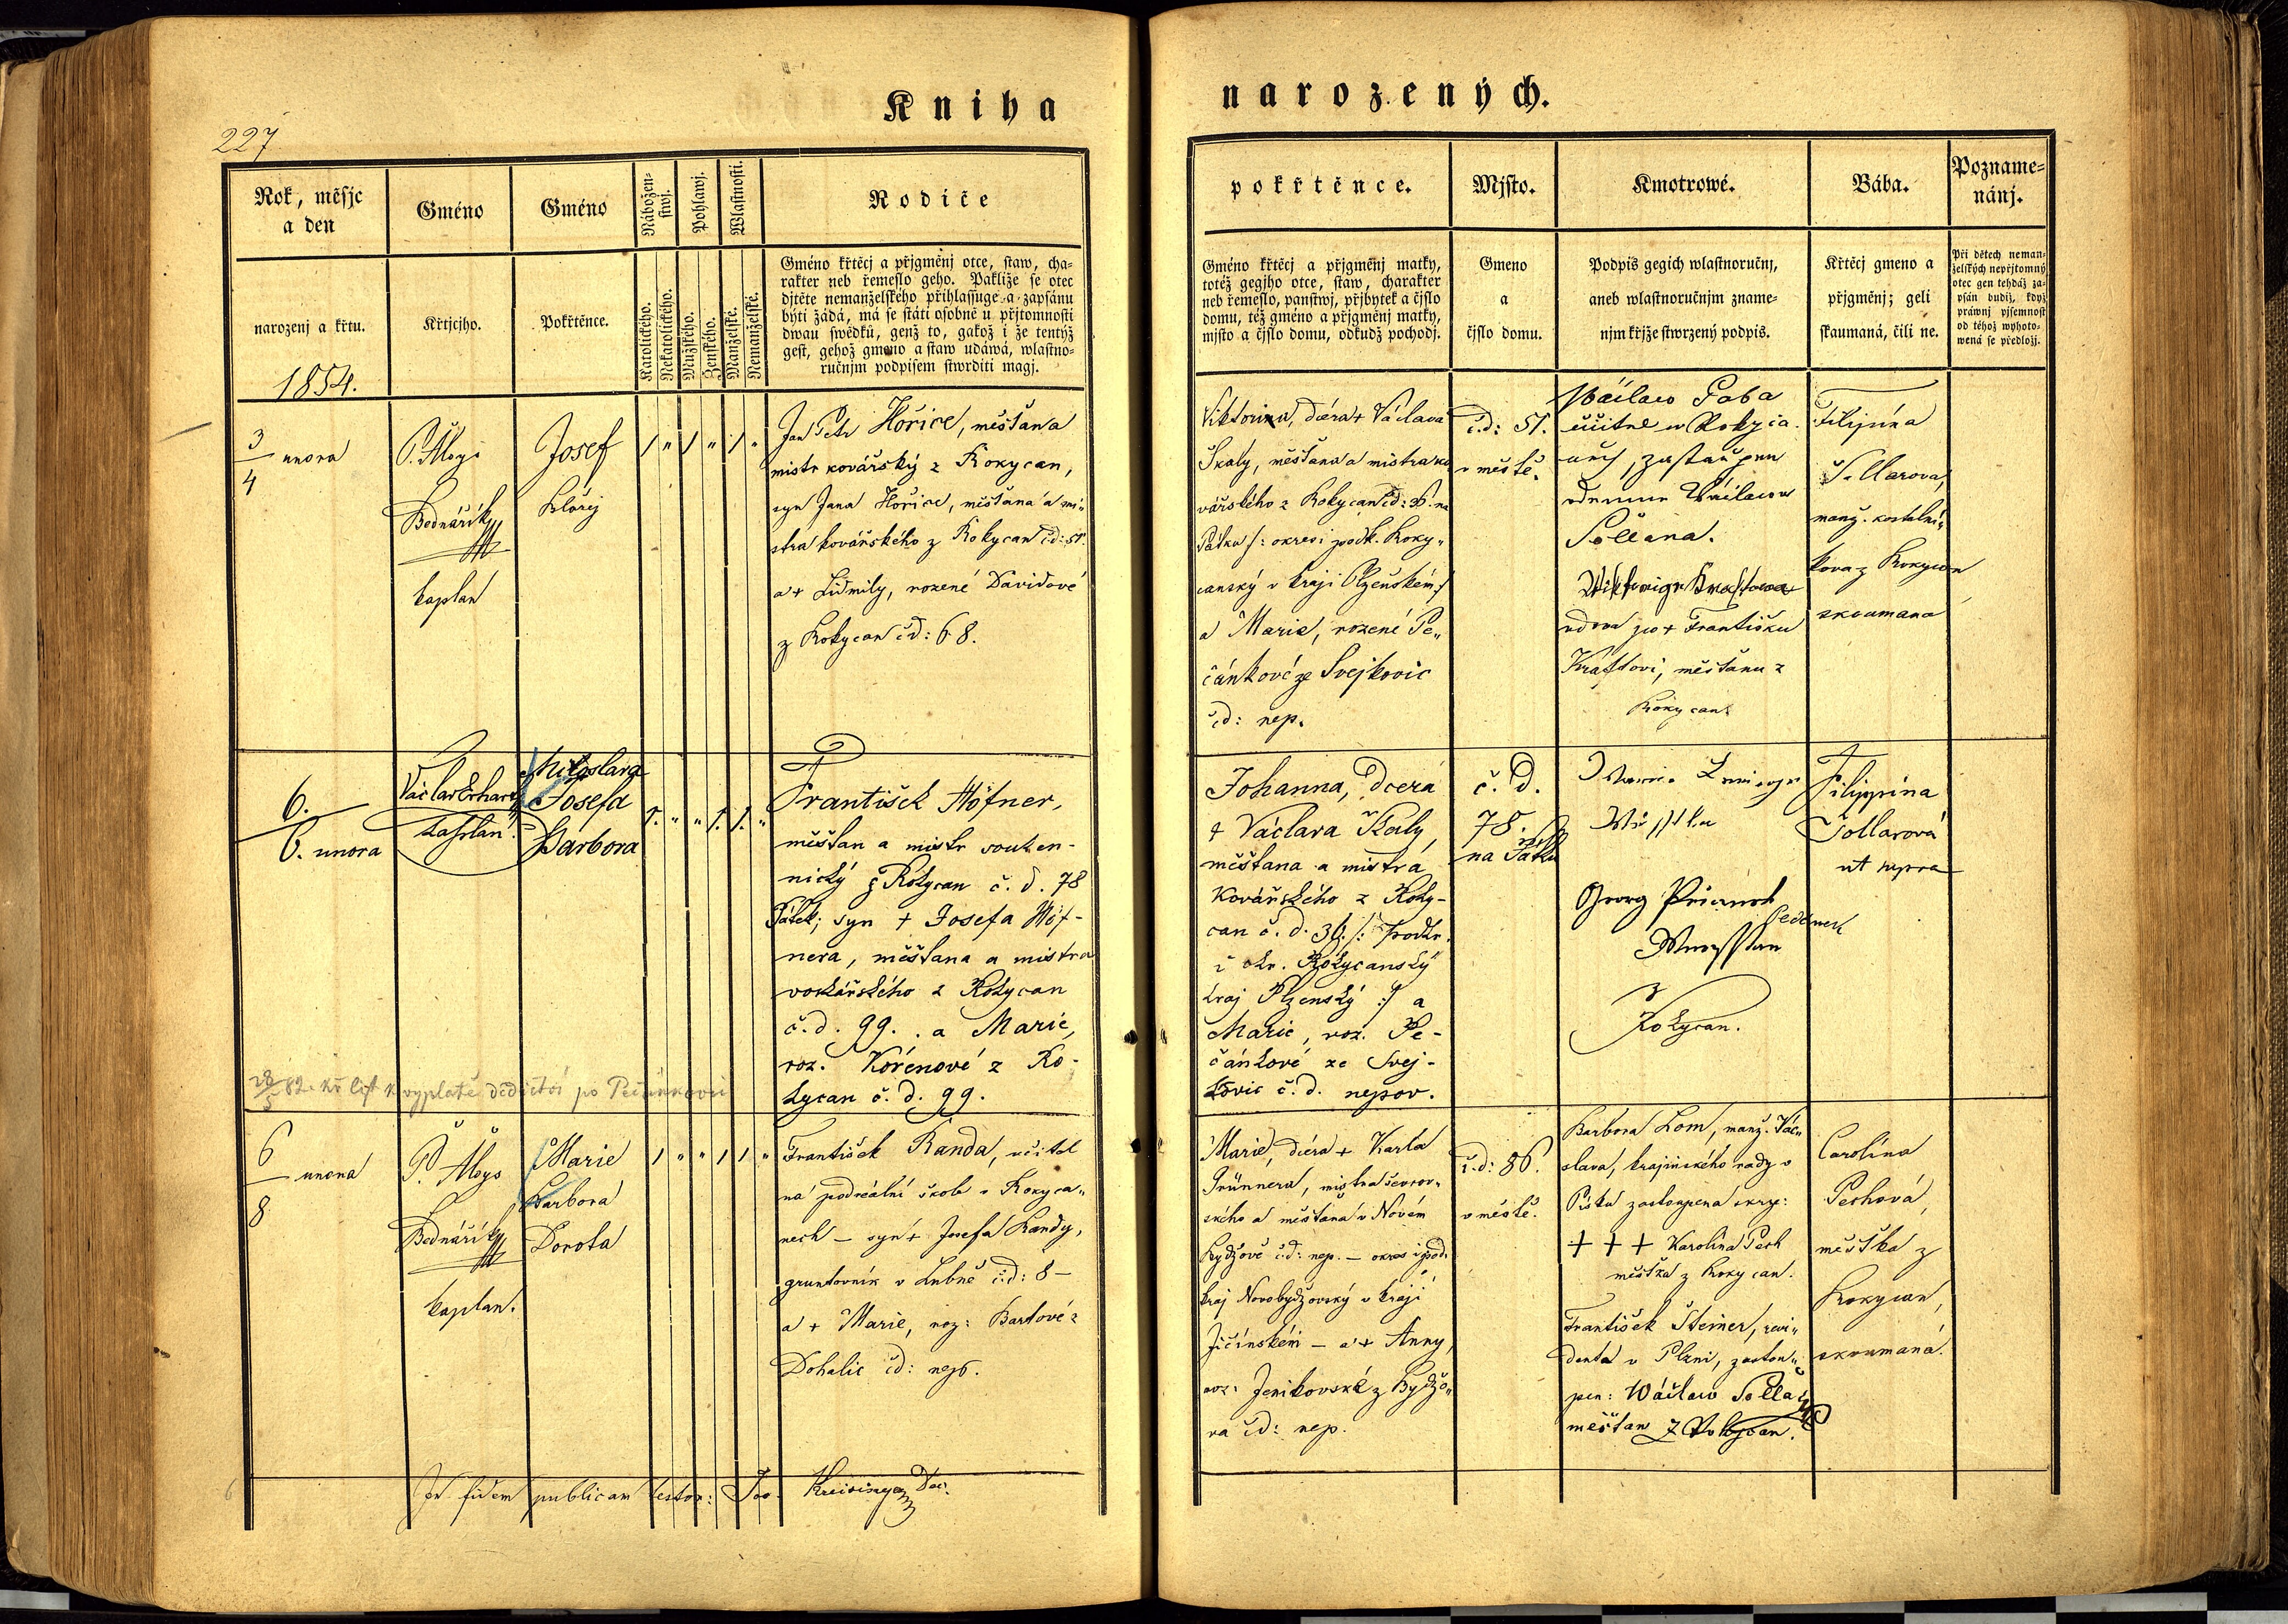 Kniha
narozených.
227
Rok, měsjc
a den
narozenj a křtu.
1854.
Gméno
Křtjcjho.
Gméno
Pokřtěnce.
Nábožen-
stwj.
Katolického.
Nekatolického.
Pohlawj.
Mužského.
Ženského.
Wlastnosti.
Manželské.
Nemanželské.
Rodiče
Gméno křtěcj a přjgměnj otce, staw, cha-
rakter neb řemeslo geho. Pakliže se otec
djtěte nemanželského přihlassuge a zapsánu
býti žádá, má se státi osobně u přjtomnosti
dwau swědků, genž to, gakož i že tentýž
gest, gehož gmeno a staw udáwá, wlastno-
ručnjm podpisem stwrditi magj.
pokřtěnce.
Gméno křtěcj a přjgměnj matky,
totéž gegjho otce, staw, charakter
neb řemeslo, panstwj, přjbytek a čjslo
domu, též gméno a přjgměnj matky,
mjsto a čjslo domu, odkudž pochodj.
Mjsto.
Gmeno
a
čjslo domu.
Kmotrowé.
Podpis gegich wlastnoručnj,
aneb wlastnoručnjm zname-
njm křjže stwrzený podpis.
Bába.
Křtěcj gmeno a
přjgměnj; geli
skaumaná, čili ne.
Pozname-
nánj.
Při dětech neman-
želských nepřjtomný
otec gen tehdáž za-
psán budiž, když
práwnj pjsemnost
od téhož wyhoto-
wená se předložj.
3
4
unora
P. Aloys
Bednářík
kaplan
Josef
1 " 1 " 1 "
Jan Petr Hořice, měšťana
mistr kovářský z Rokycan,
syn Jana Hořice, měšťana a mi„
stra kovářského z Rokycan čd: 51.
a + Lidmily, rozené Davidové
z Rokycan čd: 68.
Viktorina, dcera + Václava
Škaly, měšťana a mistra ko
vářského z Rokycan čd: 36. na
Pátku /: okresi podk. Roky„
canský v kraji Plzeňském :/
a Marie, rozené Pe„
čánkové ze Svejkovic
čd: nep.
č.d: 51.
v městě.
Wáclaw
učitel w Rokyca-
nech, zastaupen
Wáclawem
Sellana.
vdova po + Františku
Kraftovi, měšťanu z
Rokycan.
Filipina
manž. kostelní„
kova z Rokycan
zkoumana
6.
6. unora
Václav Erhart
kaplan.
Miloslava
Josefa
Barbora
1. " " 1. 1. "
František Höfner,
měšťan a mistr souken-
nický z Rokycan č. d. 78
Pátek; syn + Josefa Höf-
nera, měšťana a mistra
voskářského z Rokycan
č. d. 99. a Marie,
roz. Kořenové z Ro-
kycan č. d. 99.
Johanna, Dcera
+ Václava Škaly,
měšťana a mistra
Kovářského z Roky-
can č. d. 36 /: podkr.
i okr. Rokycanský
kraj Plzenský :/ a
Marie, roz. Pe-
čánkové ze Svej-
kovic č. d. nepov.
č. d.
78.
na Pátku
Georg
z
Rokycan.
Filippina
Tollarová
ut supra
28/5 82. kř. list k vyplatě dědictví po Pečánkovi
6
8
unora
P. Aloys
Bednářík
kaplan.
Marie
Barbora
Dorota
1 " " 1 1 "
František Randa, učitel
na podreální škole v Rokyca„
nech – syn + Josefa Randy,
gruntovník v Lubně čd: 8 –
a + Marie, roz: Bartové z
Dohalic čd: nep.
Marie, dcera + Karla
Grünnera, mistra ševcov„
ského a měšťana v Novém
Bydžově č.d: nep. – okres i pod.
kraj Novobydžovský v kraji
Jičínském – a + Anny,
roz: Jenikovské z Bydžo„
va čd: nep.
č.d: 86.
v městě.
Barbora Lom, manž. Vác„
slava, krajinského rady v
Písku zastoupená skrz:
+ + + Karolina Pech
měštka z Rokycan.
František Steiner, revi„
denta v Plzni, zastou„
pen: Wáclaw Sella
měšťan z Rokycan.
Carolína
Pechová,
měštka z
Rokycan,
zkoumaná.
In fidem publicam testor: Jos. Kreisinger Dec.